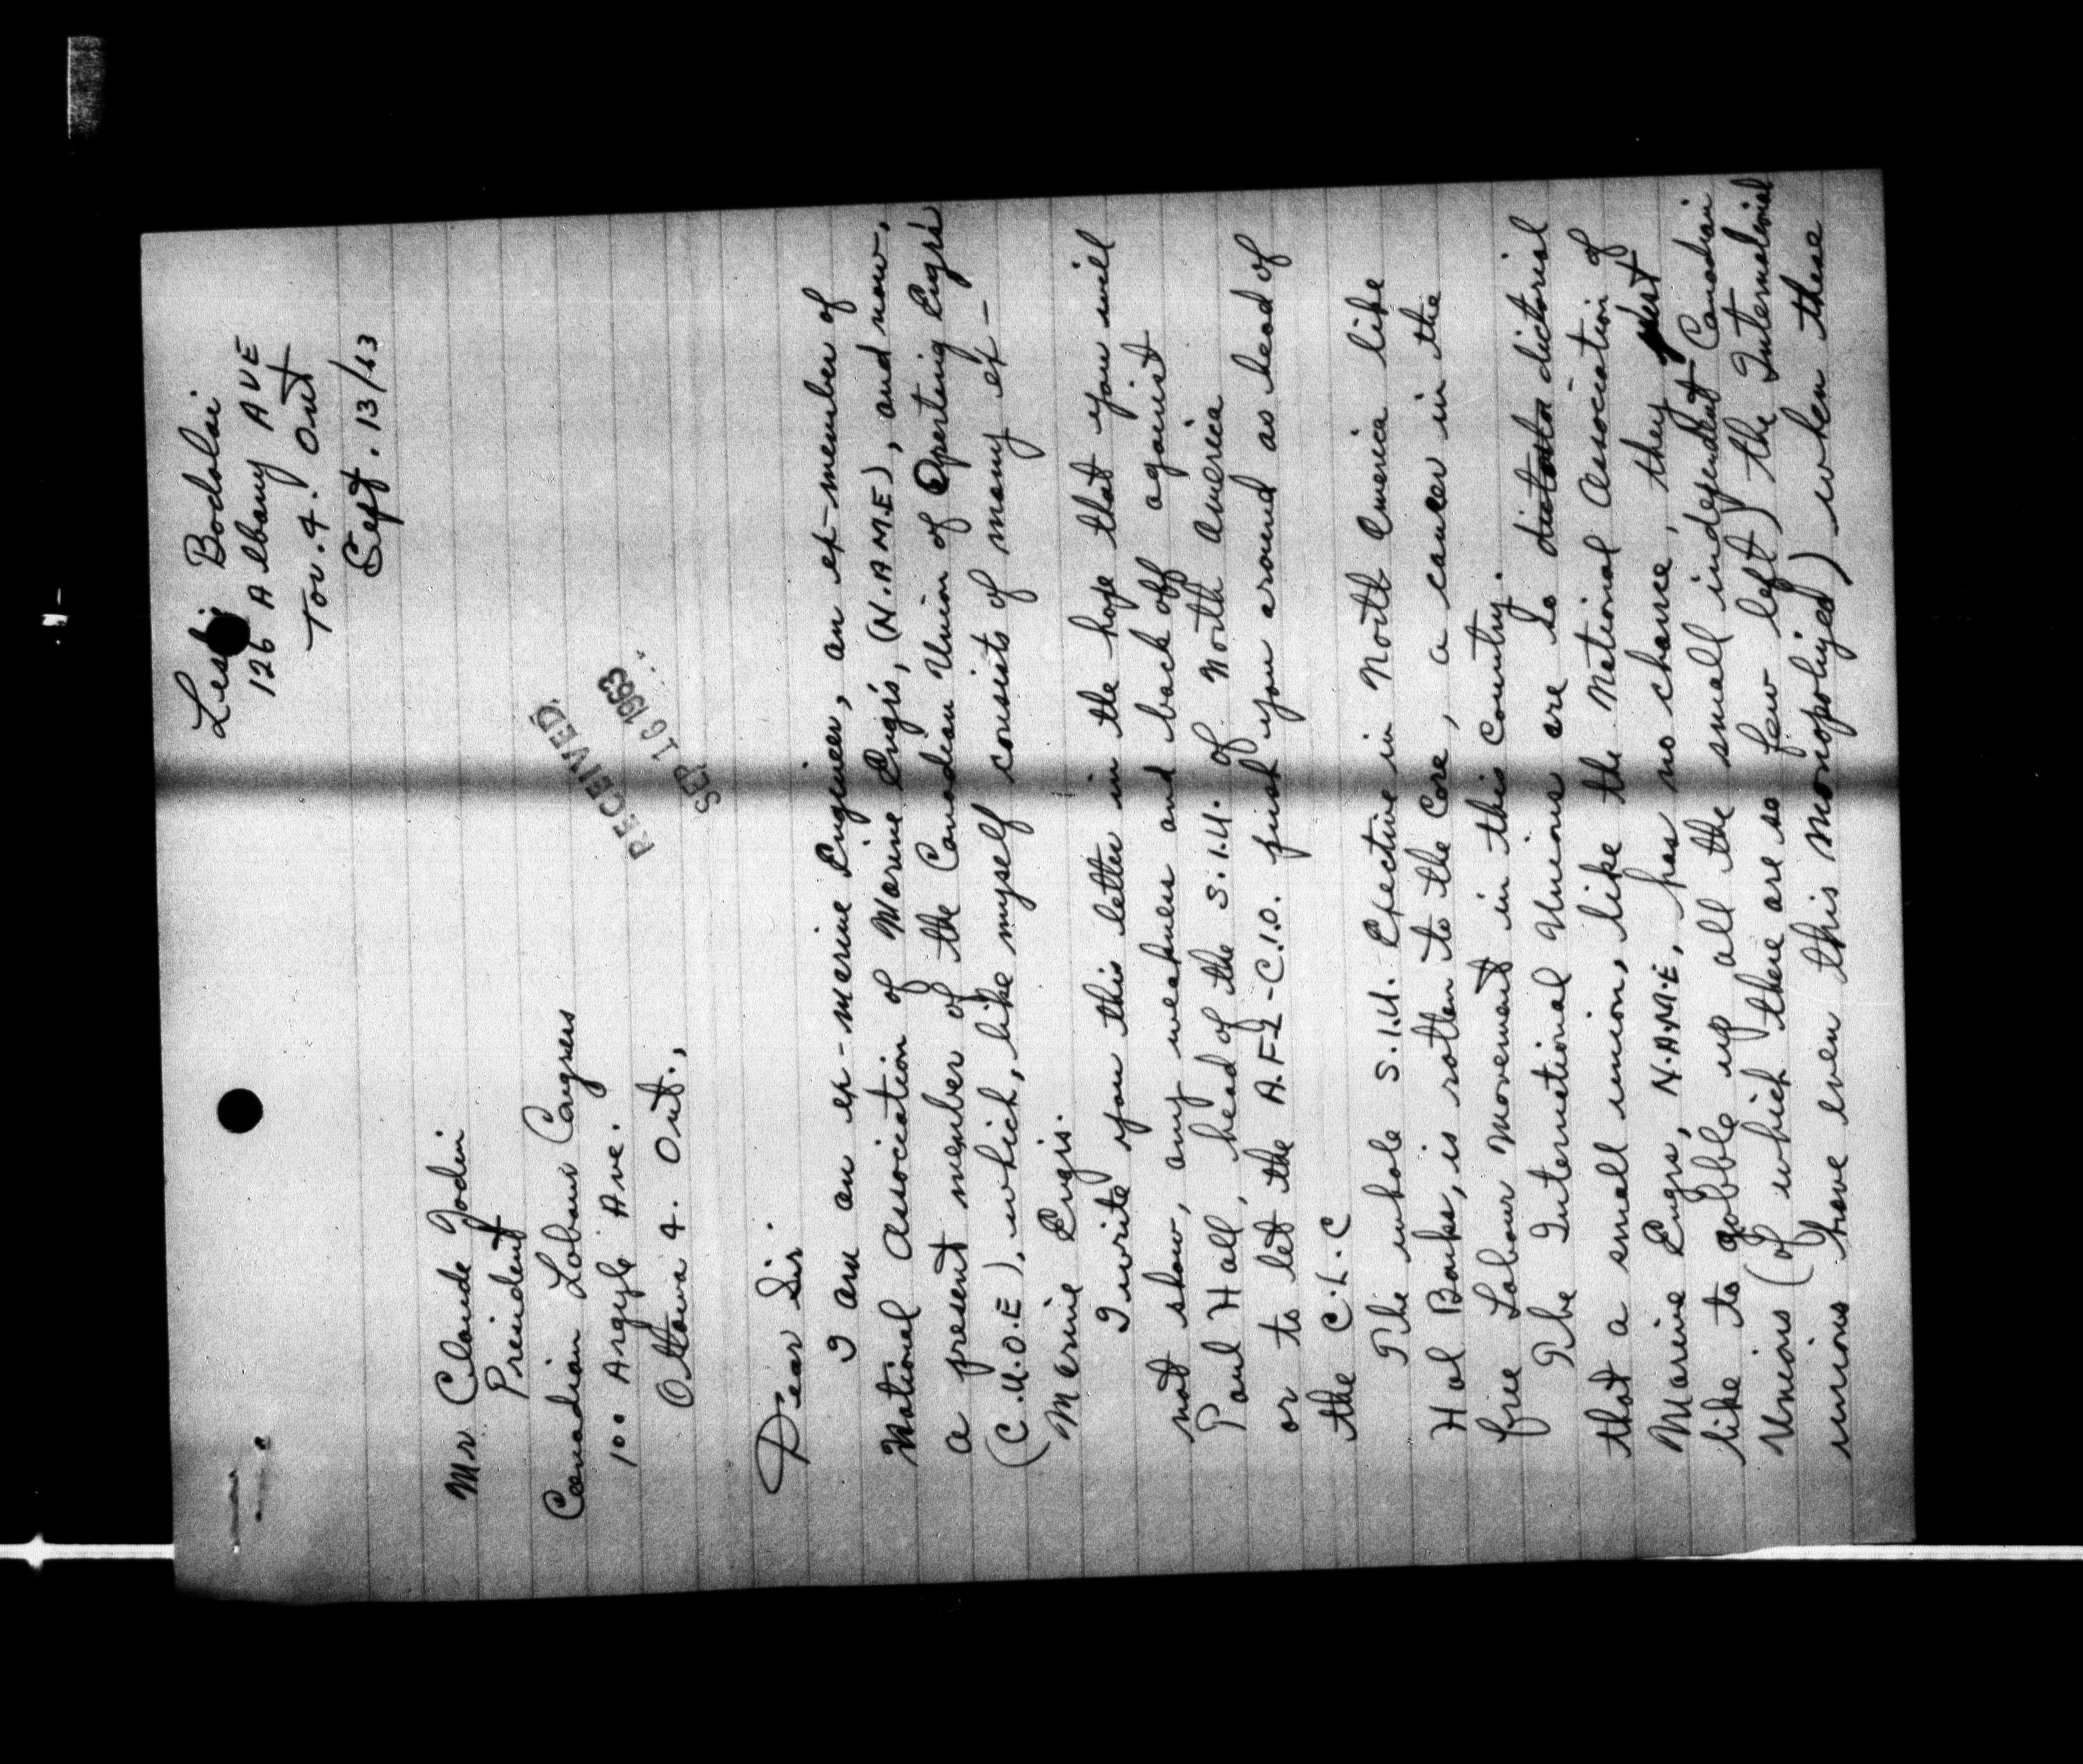 Bodolai
126 Albany AVE
Tor. 4. Ont
Sept. 13/63
RECEIVED
SEP 16 1963
Mr Claude Jodin
President
Canadian Labour Congress
100 Argyle Ave.
Ottawa 4. Ont.,
Dear Sir.
I am an ex-marine Engineer, an ex-member of
National Association of Marine Engrs, (N.A.M.E), and now,
a present member of the Canadian Union of Operating Engrs
(C.U.O.E), which, like myself consists of many ex-
Marine Engrs.
I write you this letter in the hope that you will
not show, any weakness and back off against
Paul Hall, head of the S.I.U. of North America
or to let the A.F.L-C.I.O. push you around as head of
the C.L.C
The whole S.I.U. Efective in North America like
Hal Banks, is rotten to the Core, a cancer in the
free Labour Movement in this Country.
The International Unions are so dictorial
that a small union, like the National Association of
Marine Engrs, N.A.M.E, has no chance, they just
like to gobble up all the small independent Canadian
Unions (of which there are so few left) the International
unions have even this Monopolyed) when these